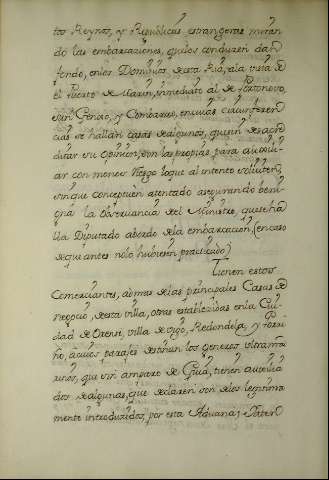 tos Reynos, y Repúblicas estrangeras miran
do las embarcaziones, qu los conduzen dan
fondo, en los Domingos de esta Ria, a la vista de
el Puerto de Marin, inmediato al de Portonovo,
San Genxo, y Combarro, en cuias circunferen
cias se hallan casas de algunos, que sin desacre
ditar su opinion, son las propias para auxili
ar con menos riesgo lo que al intento soliciten,
sin que conceptuen atentado asegurando beni
gna la observancia del Ministro, que se ha
lla Diputado abordo de la embarcacion (en caso
de que antes no lo hubiesen practicado)
Tienen estos
Comerciantes, ademas de las principales Casas de
negocio, de esta villa, otras establezidas en la Ciu
dad de Orense, villa de Vigo, Redondela, y Porri
ño, a cuios parajes destinan los generos ultrama
rinos, que sin amparo de Guia, tienen auxilia
dos de algunas, que declaren son de los legitima
mente introduzidos, por esta Aduana; y